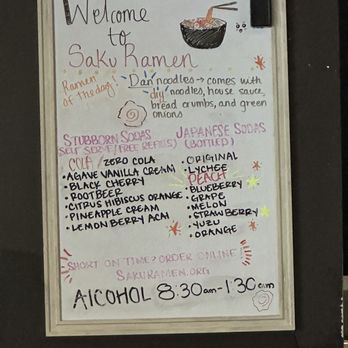 Welcome
to
Saku Ramen
Ramen
of the day:
Dan noodles → comes with
dry noodles, house sauce,
bread crumbs, and green
onions
STUBBORN SODAS
SELF SERVE/FREE REFILLS)
COLA / ZERO COLA
• AGAVE VANILLA CREAM
• BLACK CHERRY
• ROOT BEER
• CITRUS HIBISCUS ORANGE
• PINEAPPLE CREAM
• LEMON BERRY ACAI
JAPANESE SODAS
(BOTTLED)
• ORIGINAL
• LYCHEE
PEACH
• BLUEBERRY
• GRAPE
• MELON
• STRAWBERRY
• YUZU
• ORANGE
SHORT ON TIME? ORDER ONLINE!
SAKURAMEN.ORG
AlCOHOL 8:30am-1:30am